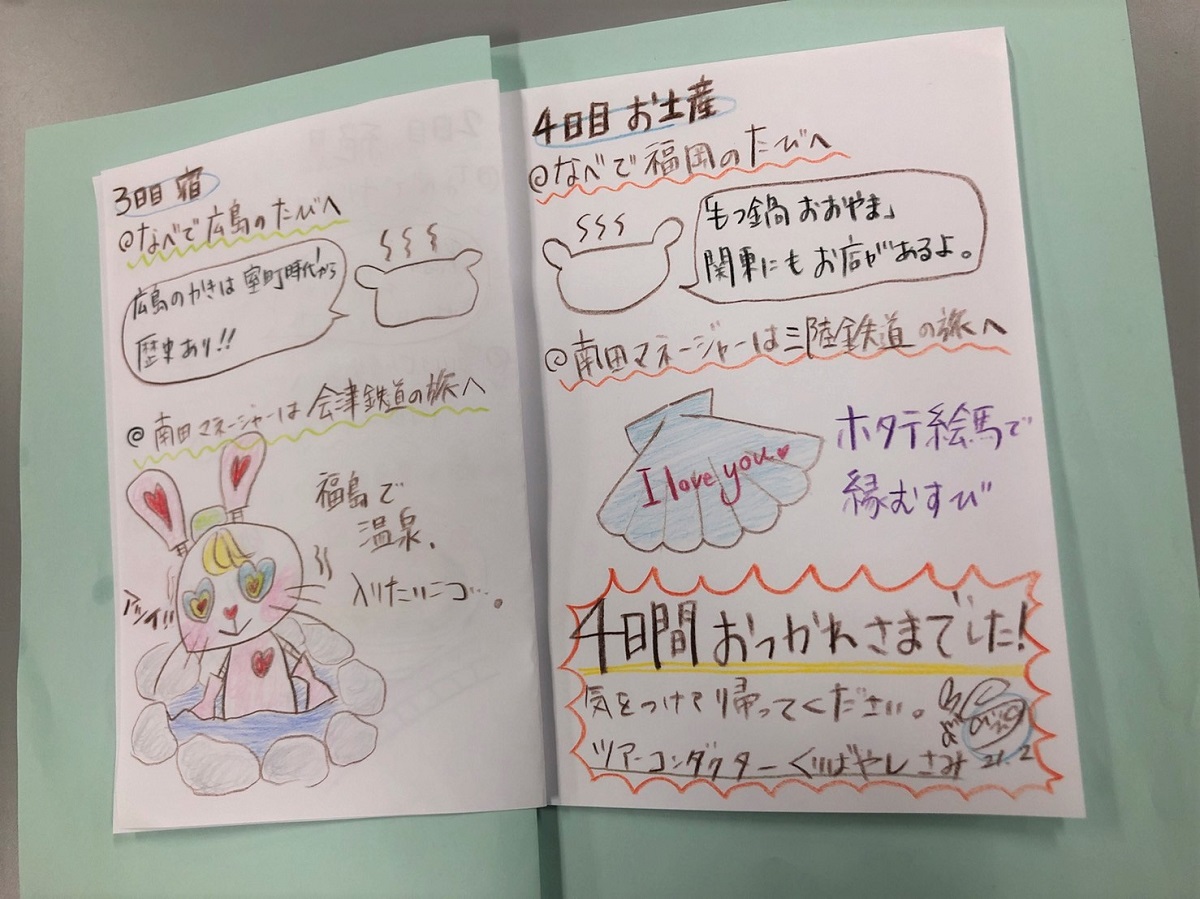 3日目 宿
@なべで広島のたびへ
広島のかきは室町時代から
歴史あり!!
@南田マネージャーは会津鉄道の旅へ
福島で
温泉、
入りたいニコ…。
アツイ!!
4日目 お土産
@なべで福岡のたびへ
「もつ鍋 おおやま」
関東にもお店があるよ。
@南田マネージャーは三陸鉄道の旅へ
I love you♥
ホタテ絵馬で
縁むすび
4日間 おつかれさまでした!
気をつけて帰ってください。
ツアーコンダクター くりばやし さみ
21.2